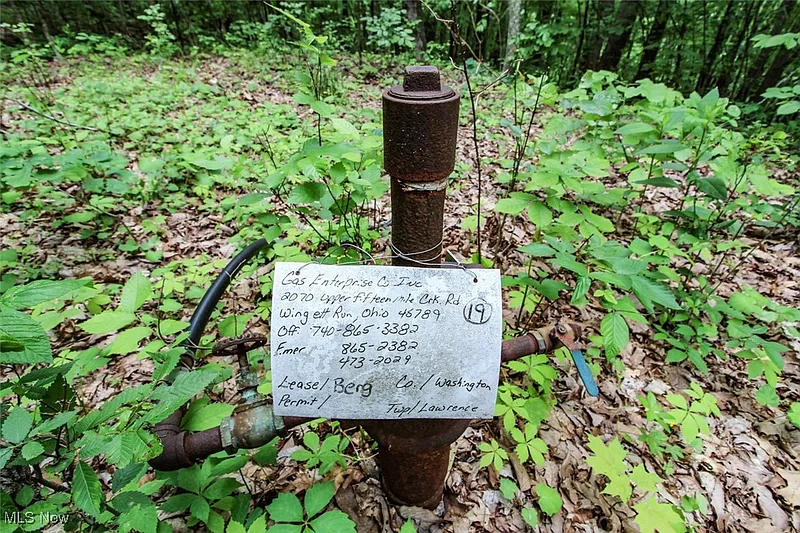 Gas Enterprise Co Inc
2070 Upper fifteen mile Crk. Rd
Wingett Run, Ohio 45789
19
Off 740-865-3382
Emer 865-2382
473-2029
Lease/ Berg Co./ Washington
Permit/ Twp/ Lawrence
MLS Now